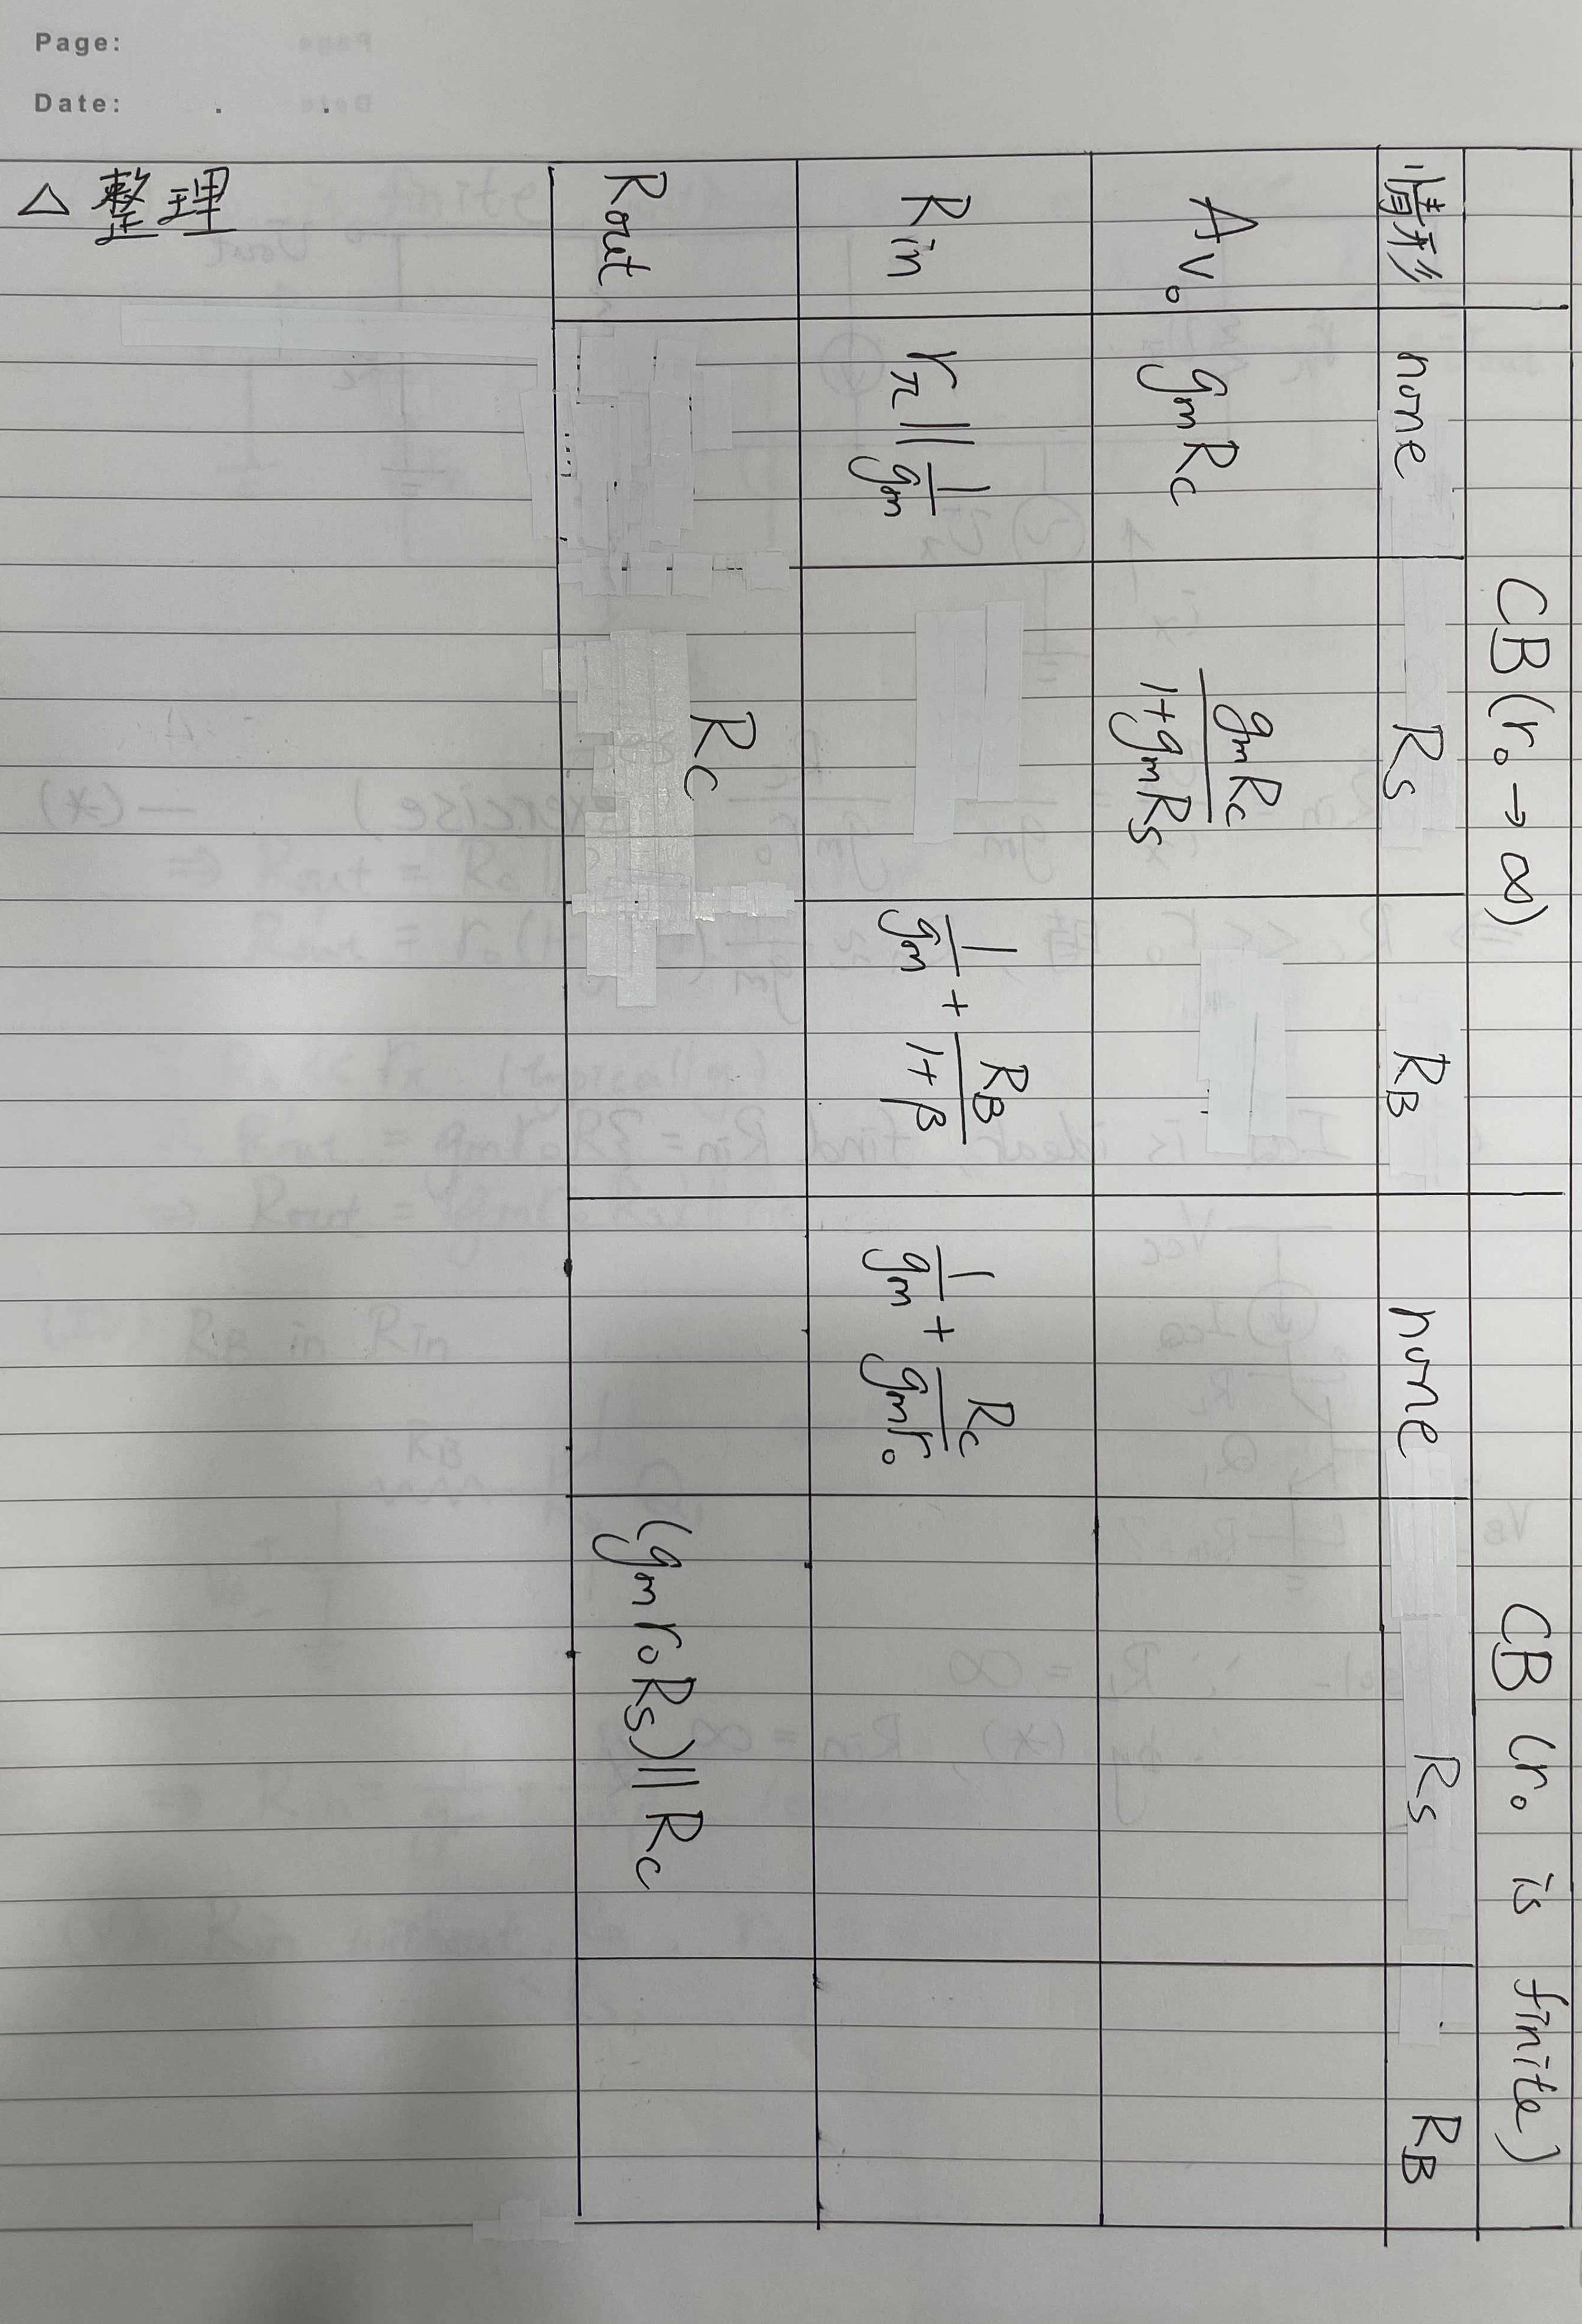 Page:
Date: . .
△ 整理
CB (r₀ → ∞) CB (r₀ is finite)
情形 none Rs RB none Rs RB
Av₀ gmRc gmRc/(1+gmRs)
Rin rπ || 1/gm 1/gm + RB/(1+β) 1/gm + Rc/(gmr₀)
Rout Rc (gmr₀Rs)||Rc